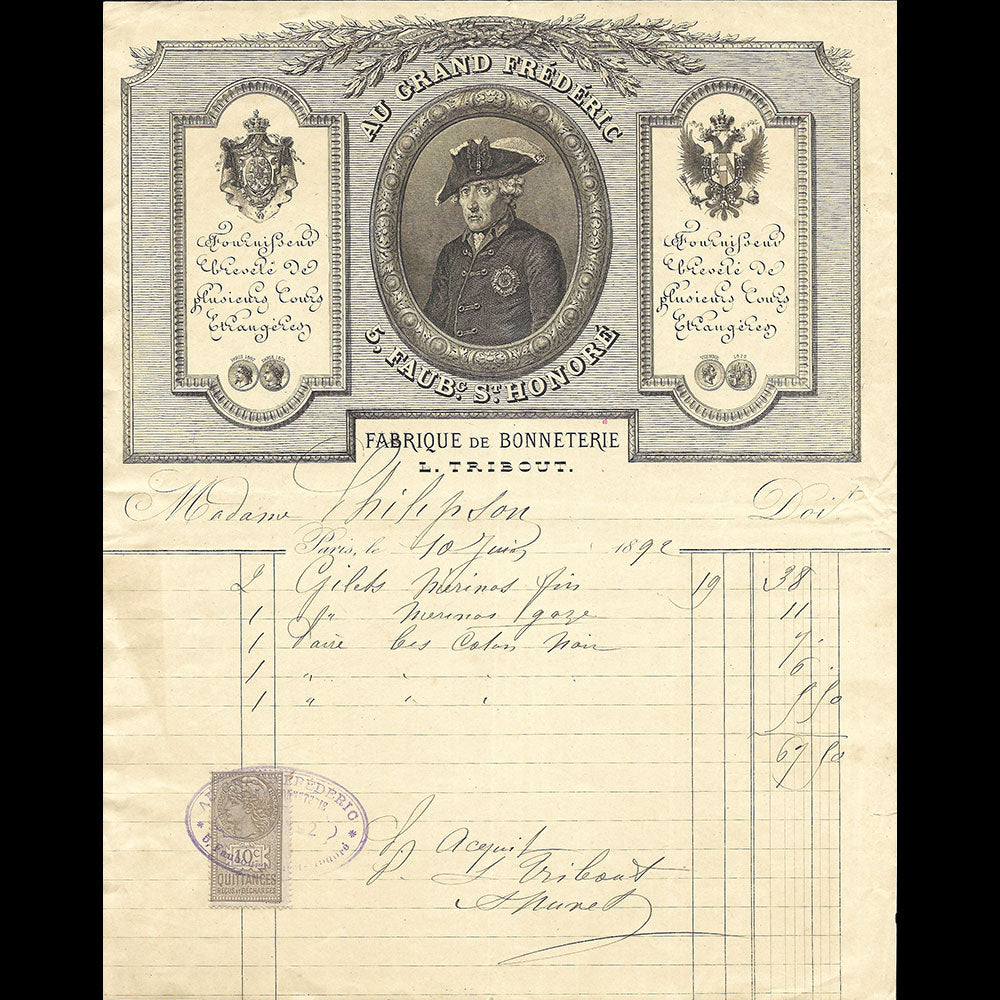 AU GRAND FRÉDÉRIC
Fournisseur
breveté de
plusieurs Cours
Etrangères
Fournisseur
breveté de
plusieurs Cours
Etrangères
5, FAUBG. ST. HONORÉ
FABRIQUE DE BONNETERIE
L. TRIBOUT.
Madame Philipson Doit
Paris, le 10 Juin 1892
2 Gilets Merinos fin 19 38
1 〃 Merinos gaze 11
1 Paire bas Coton Noir 7
1 〃 〃 〃 6
1 〃 〃 〃 5 50
67 50
FRÉDÉRIC
10c
QUITTANCES
REÇUS ET DÉCHARGES
Pr. Acquit
L Tribout